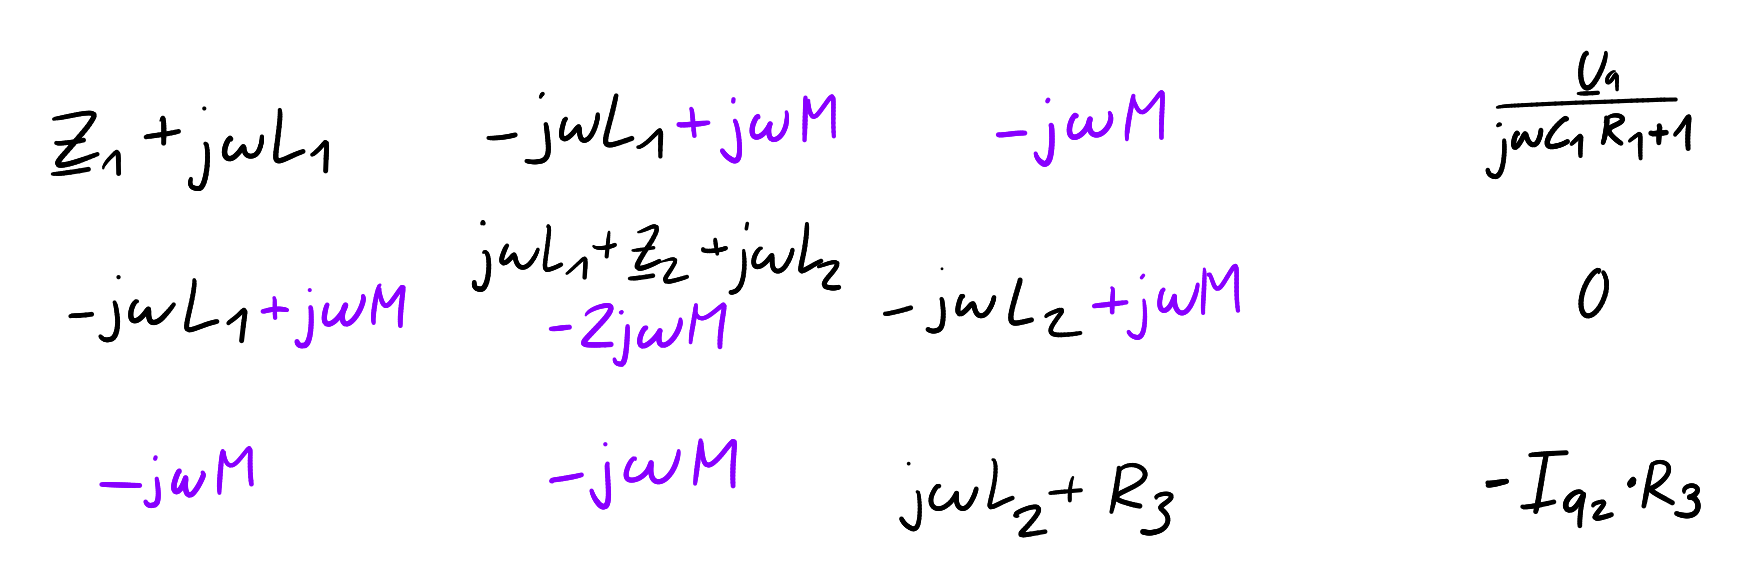 Z₁ + jωL₁ -jωL₁ + jωM -jωM U_q / (jωC₁R₁+1)
-jωL₁ + jωM jωL₁ + Z₂ + jωL₂ - 2jωM -jωL₂ + jωM 0
-jωM -jωM jωL₂ + R₃ -I_q₂ · R₃